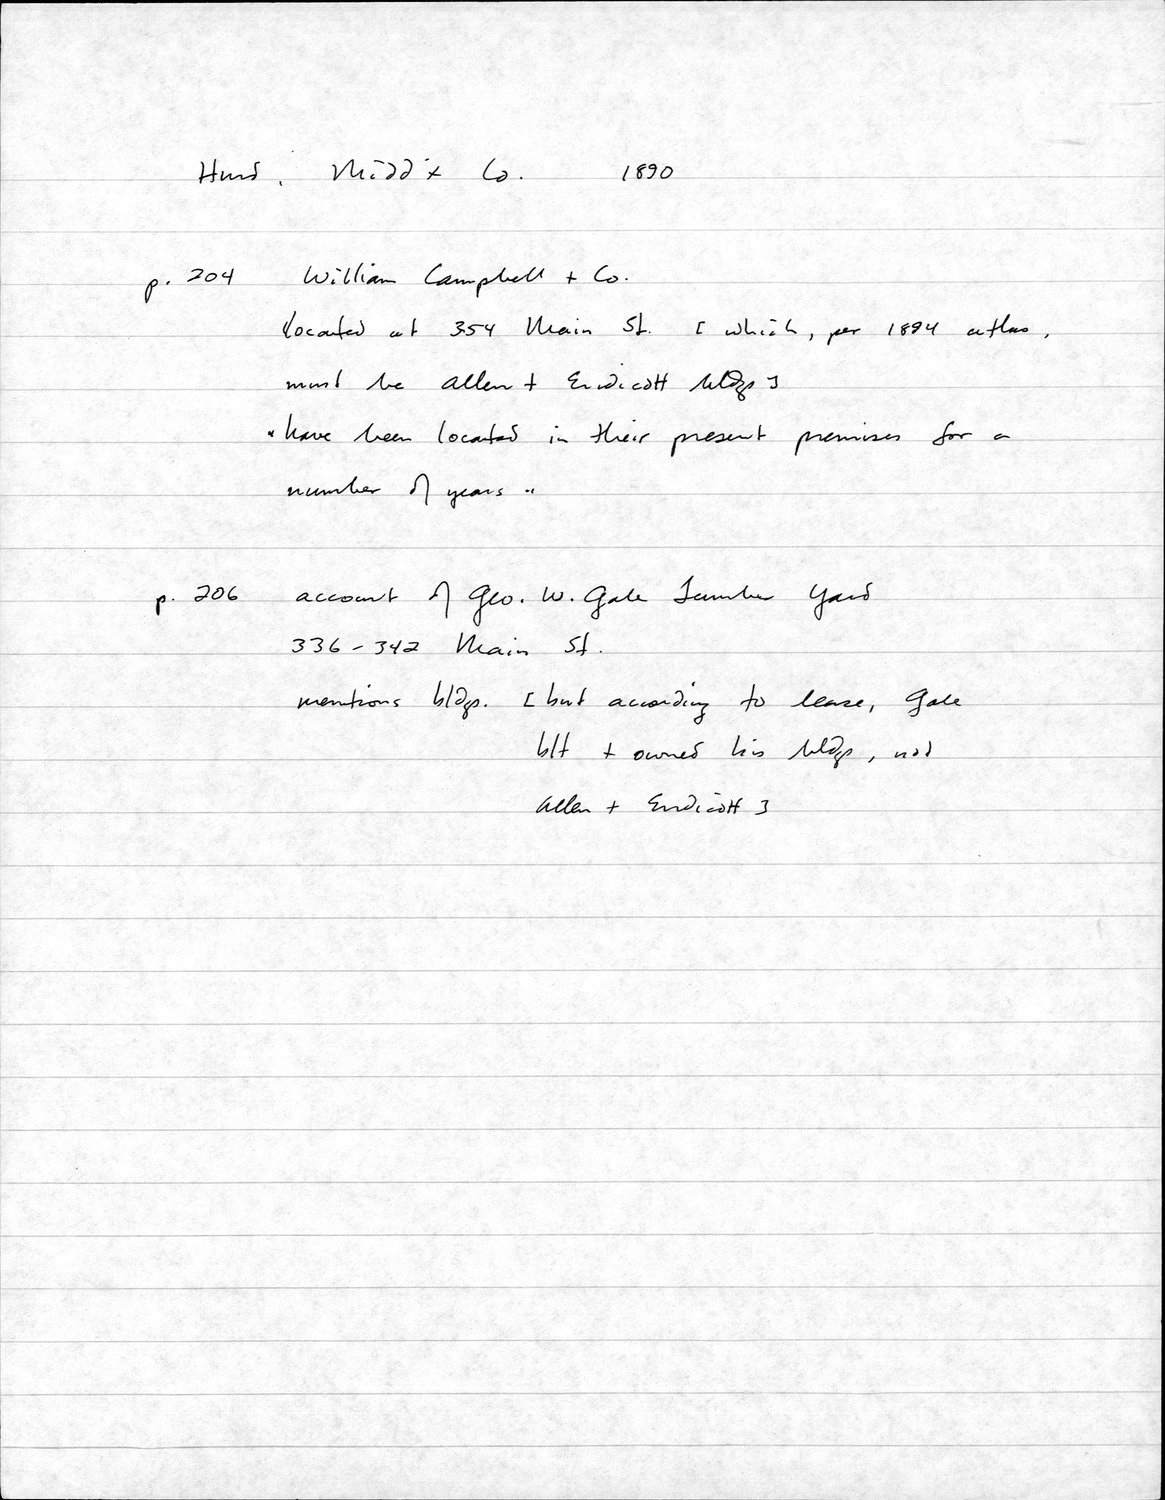 Hurd, Midd'x Co. 1890
p. 204 William Campbell + Co.
located at 354 Main St. [ which, per 1894 atlas,
must be Allen + Endicott bldgs ]
"have been located in their present premises for a
number of years"
p. 206 account of Geo. W. Gale Lumber Yard
336-342 Main St.
mentions bldgs. [ but according to lease, Gale
blt + owned his bldgs, not
Allen + Endicott ]